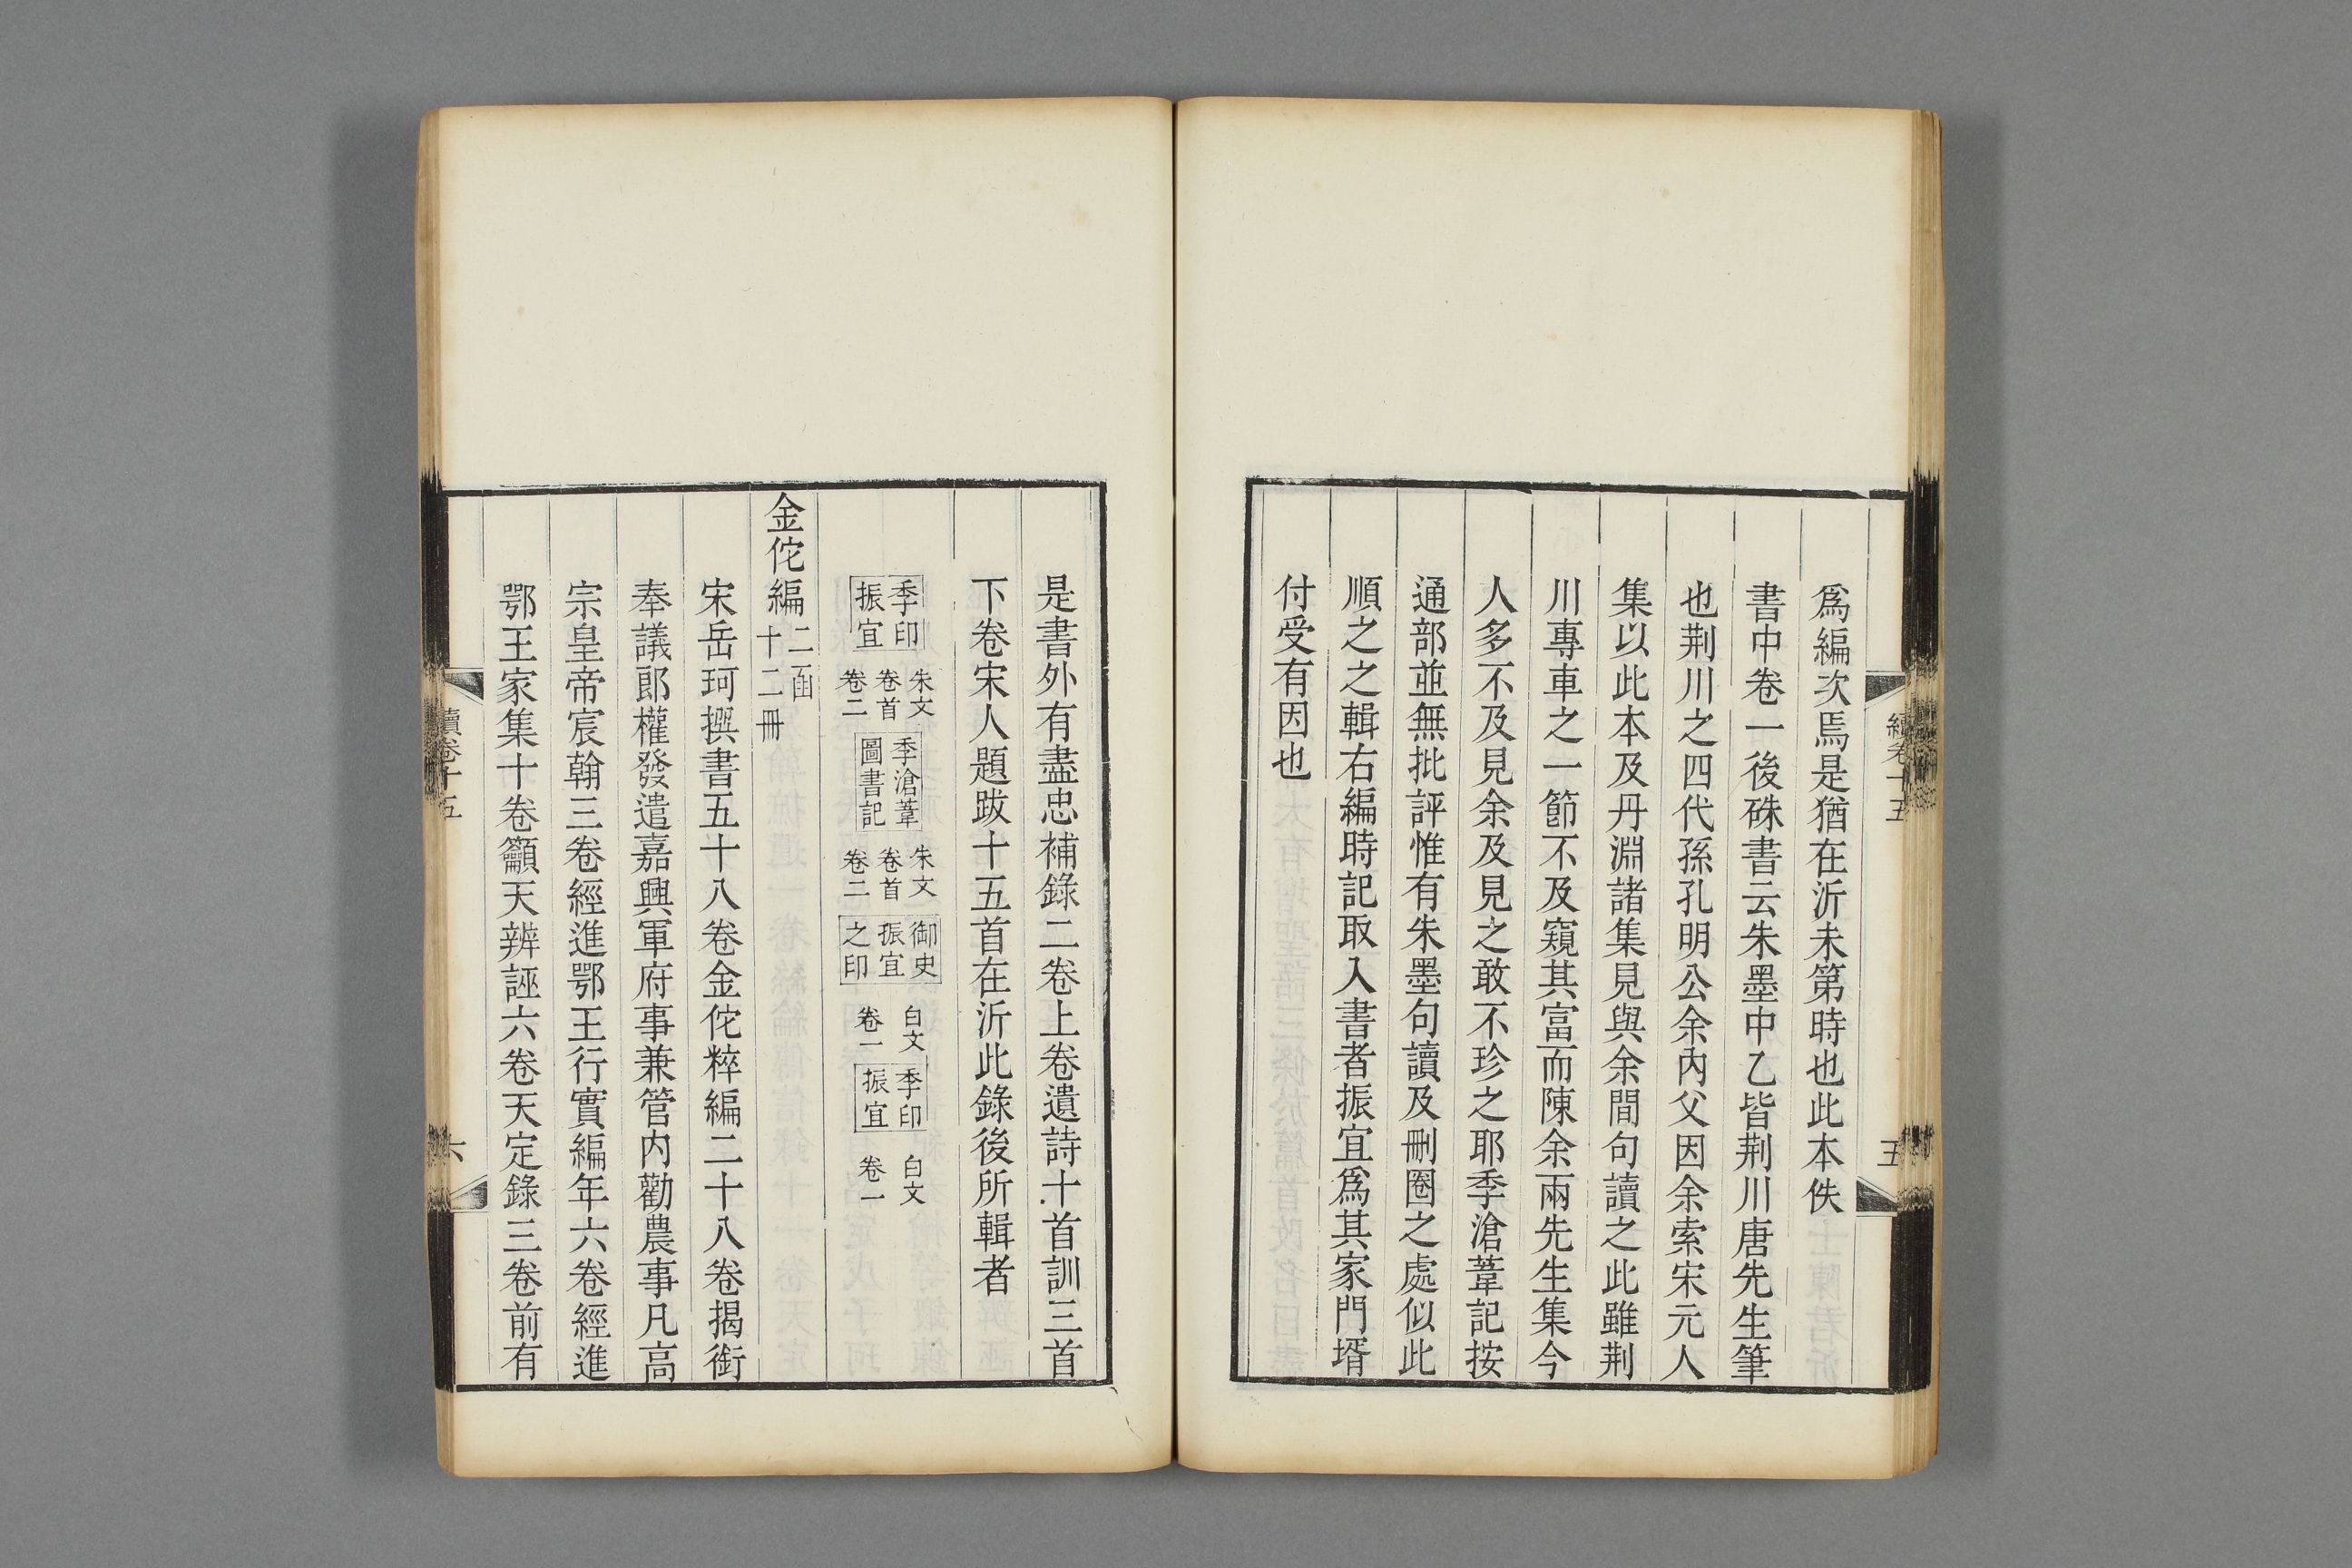 爲編次焉是猶在沂未第時也此本佚
書中卷一後硃書云朱墨中乙皆荆川唐先生筆
也荆川之四代孫孔明公余內父因余索宋元人
集以此本及丹淵諸集見與余間句讀之此雖荆
川專車之一節不及窺其富而陳余兩先生集今
人多不及見余及見之敢不珍之耶季滄葦記按
通部並無批評惟有朱墨句讀及刪圈之處似此
順之之輯右編時記取入書者振宜爲其家門壻
付受有因也
續卷十五
五
是書外有盡忠補錄二卷上卷遺詩十首訓三首
下卷宋人題跋十五首在沂此錄後所輯者
季印振宜
朱文卷首卷二
季滄葦圖書記
朱文卷首卷二
御史振宜之印
白文卷一
季印振宜
白文卷一
金佗編二函十二冊
宋岳珂撰書五十八卷金佗稡編二十八卷揭銜
奉議郎權發遣嘉興軍府事兼管內勸農事凡高
宗皇帝宸翰三卷經進鄂王行實編年六卷經進
鄂王家集十卷籲天辨誣六卷天定錄三卷前有
續卷十五
六